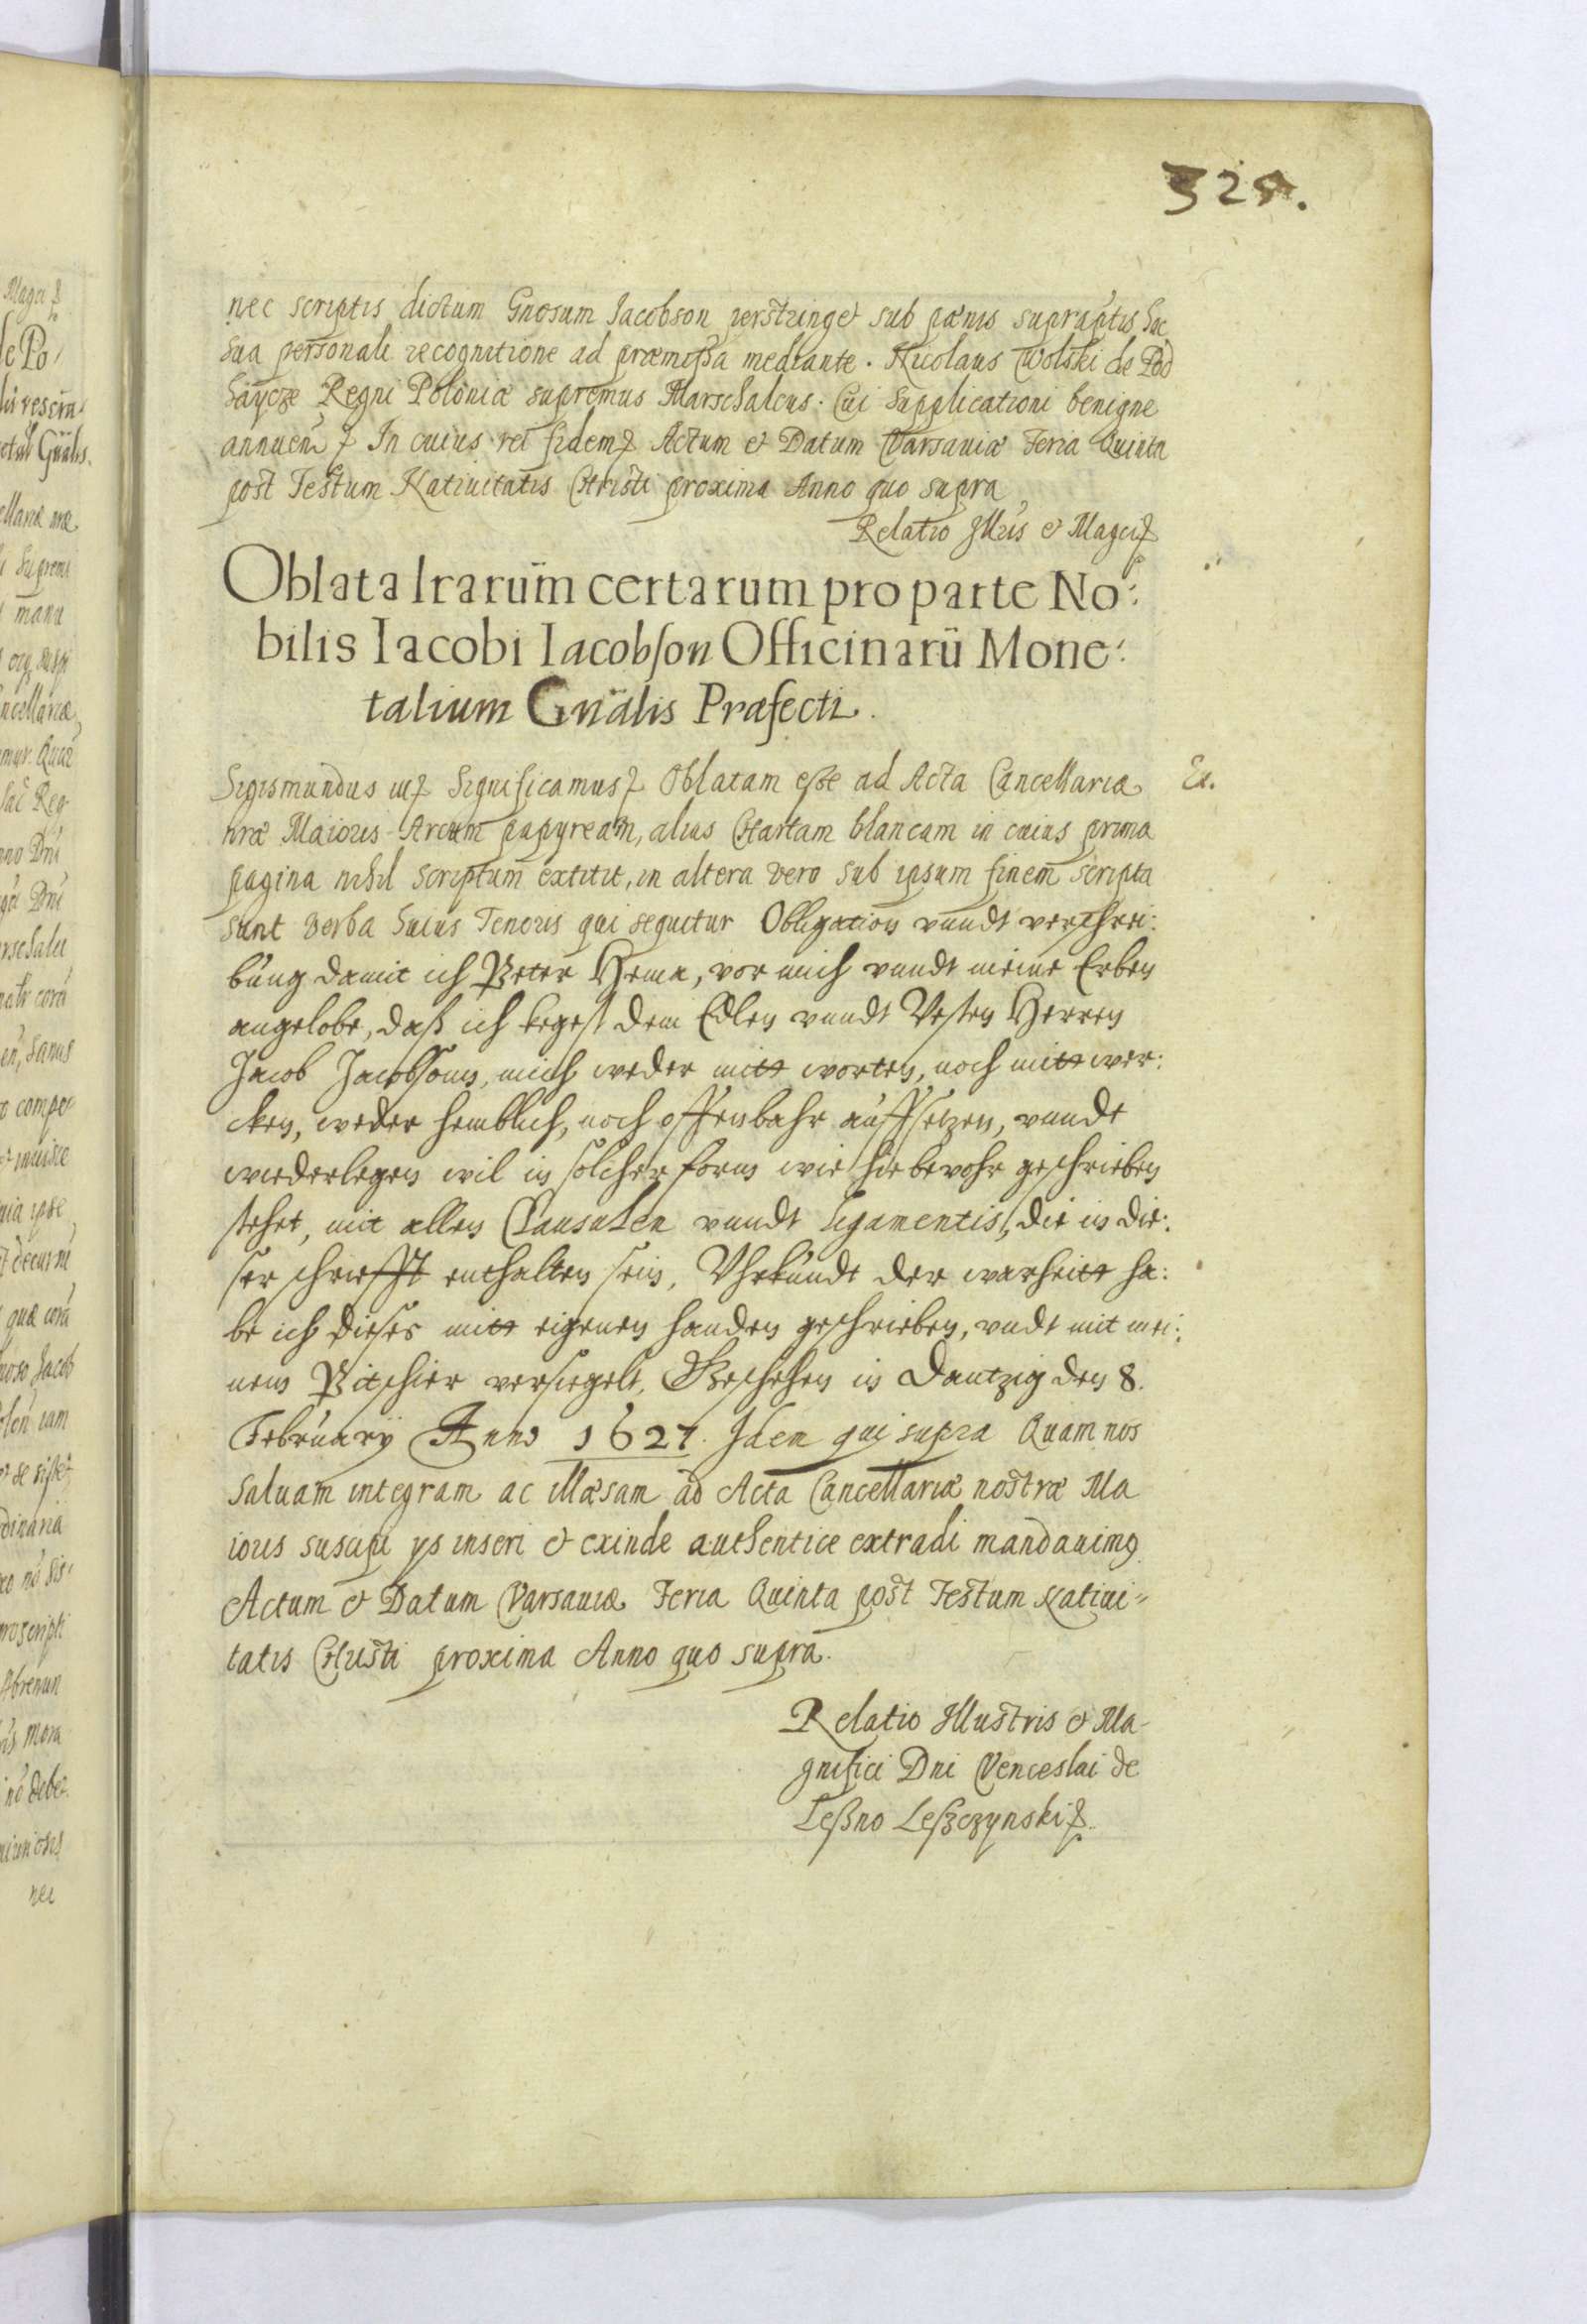 324.
nec scriptis dictum Gnosum Jacobson perstringet sub pænis supraptis hac
sua personali recognitione ad præmissa mediante. Nicolaus Wolski de Pod
haycze Regni Poloniæ supremus Marschalcus. Cui Supplicationi benigne
annuen In cuius rei fidem Actum et Datum Varsauiæ Feria Quinta
post Festum Natiuitatis Christi proxima Anno quo supra
Relatio Jllris et Magci
Oblata lrarum certarum pro parte No:
bilis Iacobi Iacobson Officinarũ Mone:
talium Gnãlis Præfecti.
Sigismundus Significamus Oblatam esse ad Acta Cancellariæ
Ex.
nræ Maioris Arcum papyream, alias Chartam blancam in cuius prima
pagina nihil scriptum extitit, in altera vero sub ipsum finem scripta
sunt verba huius Tenoris qui sequitur Obligation vundt verschrei:
bung damit ich Peter Hema, vor mich vundt meine Erben
angelobe, daß ich kegest dem Edlen vundt Vesten Herren
Jacob Jacobsoms, mich weder mitt worten, noch mitt wer:
cken, weder heimblich, noch offenbahr auffsetzen, vundt
wiederlegen wil in solcher form wie hiebevohr geschrieben
stehet, mit allen Clausulen vundt ligamentis, die in die:
ser schriefft enthalten sein, Vhrkundt der warheitt ha:
be ich dieses mitt eigenen handen geschrieben, vndt mit mei:
nem Pitschier versiegelt, Geschehen in Dantzig den 8.
February Anno 1627. Jdem qui supra Quam nos
saluam integram ac illæsam ad Acta Cancellariæ nostræ Ma
ioris suscipi ys inseri et exinde authentice extradi mandauimg
Actum et Datum Varsauiæ Feria Quinta post Festum Natiui=
tatis Christi proxima Anno quo supra.
Relatio Jllustris et Ma-
gnifici Dni Venceslai de
Leßno Leßczynski